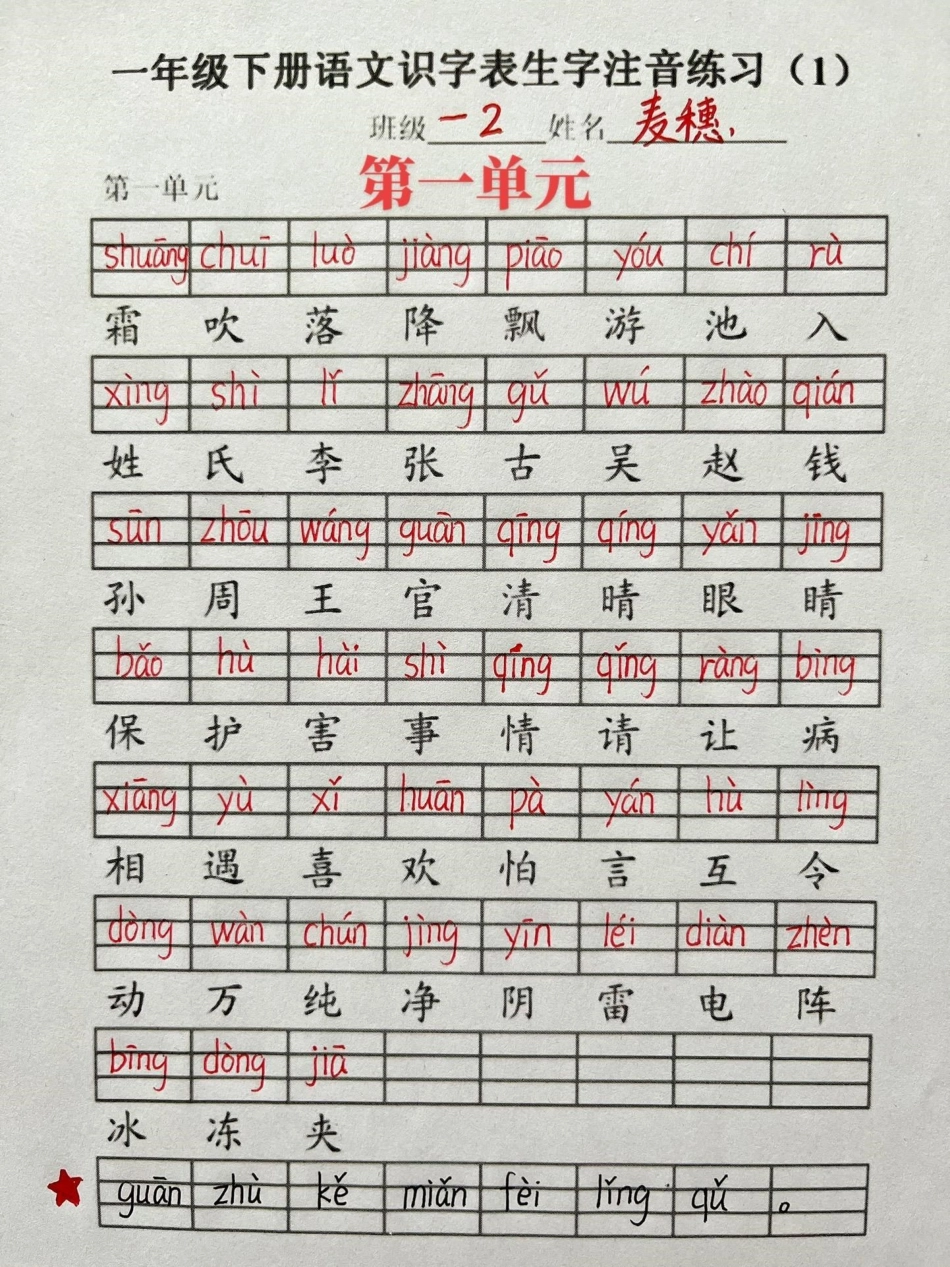 一年级下册语文识字表生字注音练习（1）
班级 一2 姓名 麦穗.
第一单元 第一单元
shuāng chuī luò jiàng piāo yóu chí rù
霜 吹 落 降 飘 游 池 入
xìng shì lǐ zhāng gǔ wú zhào qián
姓 氏 李 张 古 吴 赵 钱
sūn zhōu wáng guān qīng qíng yǎn jīng
孙 周 王 官 清 晴 眼 睛
bǎo hù hài shì qíng qǐng ràng bìng
保 护 害 事 情 请 让 病
xiāng yù xǐ huān pà yán hù lìng
相 遇 喜 欢 怕 言 互 令
dòng wàn chún jìng yīn léi diàn zhèn
动 万 纯 净 阴 雷 电 阵
bīng dòng jiā
冰 冻 夹
guān zhù kě miǎn fèi lǐng qǔ 。